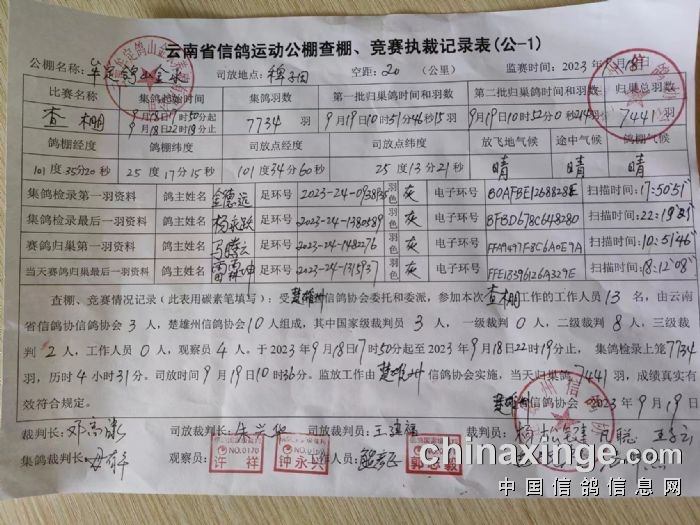 云南省信鸽运动公棚查棚、竞赛执裁记录表(公-1)
公棚名称: 司放地点: 空距:20(公里) 监赛时间:2023年 月18日
比赛名称 集鸽起始时间 集鸽羽数 第一批归巢鸽时间和羽数 第二批归巢鸽时间和羽数 归巢总羽数
查棚 9月18日17时50分起 9月18日22时19分止 7734羽 9月19日10时51分46秒15羽 9月19日10时52分00秒 羽 7441羽
鸽棚经度 鸽棚纬度 司放点经度 司放点纬度 放飞地气候 途中气候 鸽棚气候
101度35分20秒 25度17分15秒 101度34分60秒 25度13分21秒 晴 晴 晴
集鸽检录第一羽资料 鸽主姓名 金德远 足环号 2023-24- 羽色 灰 电子环号 B0AFBE1268828E 扫描时间:17:50'51"
集鸽检录最后一羽资料 鸽主姓名 杨永跃 足环号 2023-24-1380589 羽色 灰 电子环号 BFBD678C648280 扫描时间:22:19'
赛鸽归巢第一羽资料 鸽主姓名 马腾云 足环号 2023-24-1482276 羽色 灰 电子环号 FFA9497F8C6A0E9A 扫描时间:10:51'46"
当天赛鸽归巢最后一羽资料 鸽主姓名 足环号 2023-24-1315937 羽色 灰 电子环号 FFE18596126A329E 扫描时间:18:12'08"
查棚、竞赛情况记录(此表用碳素笔填写):受楚雄州信鸽协会委托和委派,参加本次查棚工作的工作人员13名,由云南
省信鸽协信鸽协会3人,楚雄州信鸽协会10人组成,其中国家级裁判员3人,一级裁判0人,二级裁判8人,三级裁
判2人,工作人员0人,观察员4人。于2023年9月18日17时50分起至2023年9月18日22时19分止,集鸽检录上笼7734
羽,历时4小时31分。司放时间9月19日10时36分。监放工作由楚雄州信鸽协会实施,当天归巢鸽7441羽,成绩真实有
效符合规定。
楚雄州信鸽协会 2023年9月19日
裁判长: 司放裁判长: 司放裁判员: 裁判员:
集鸽裁判长: 观察员: 许祥 NO.0170 钟永兴 工作人员:
chinaxinge.com
中国信鸽信息网